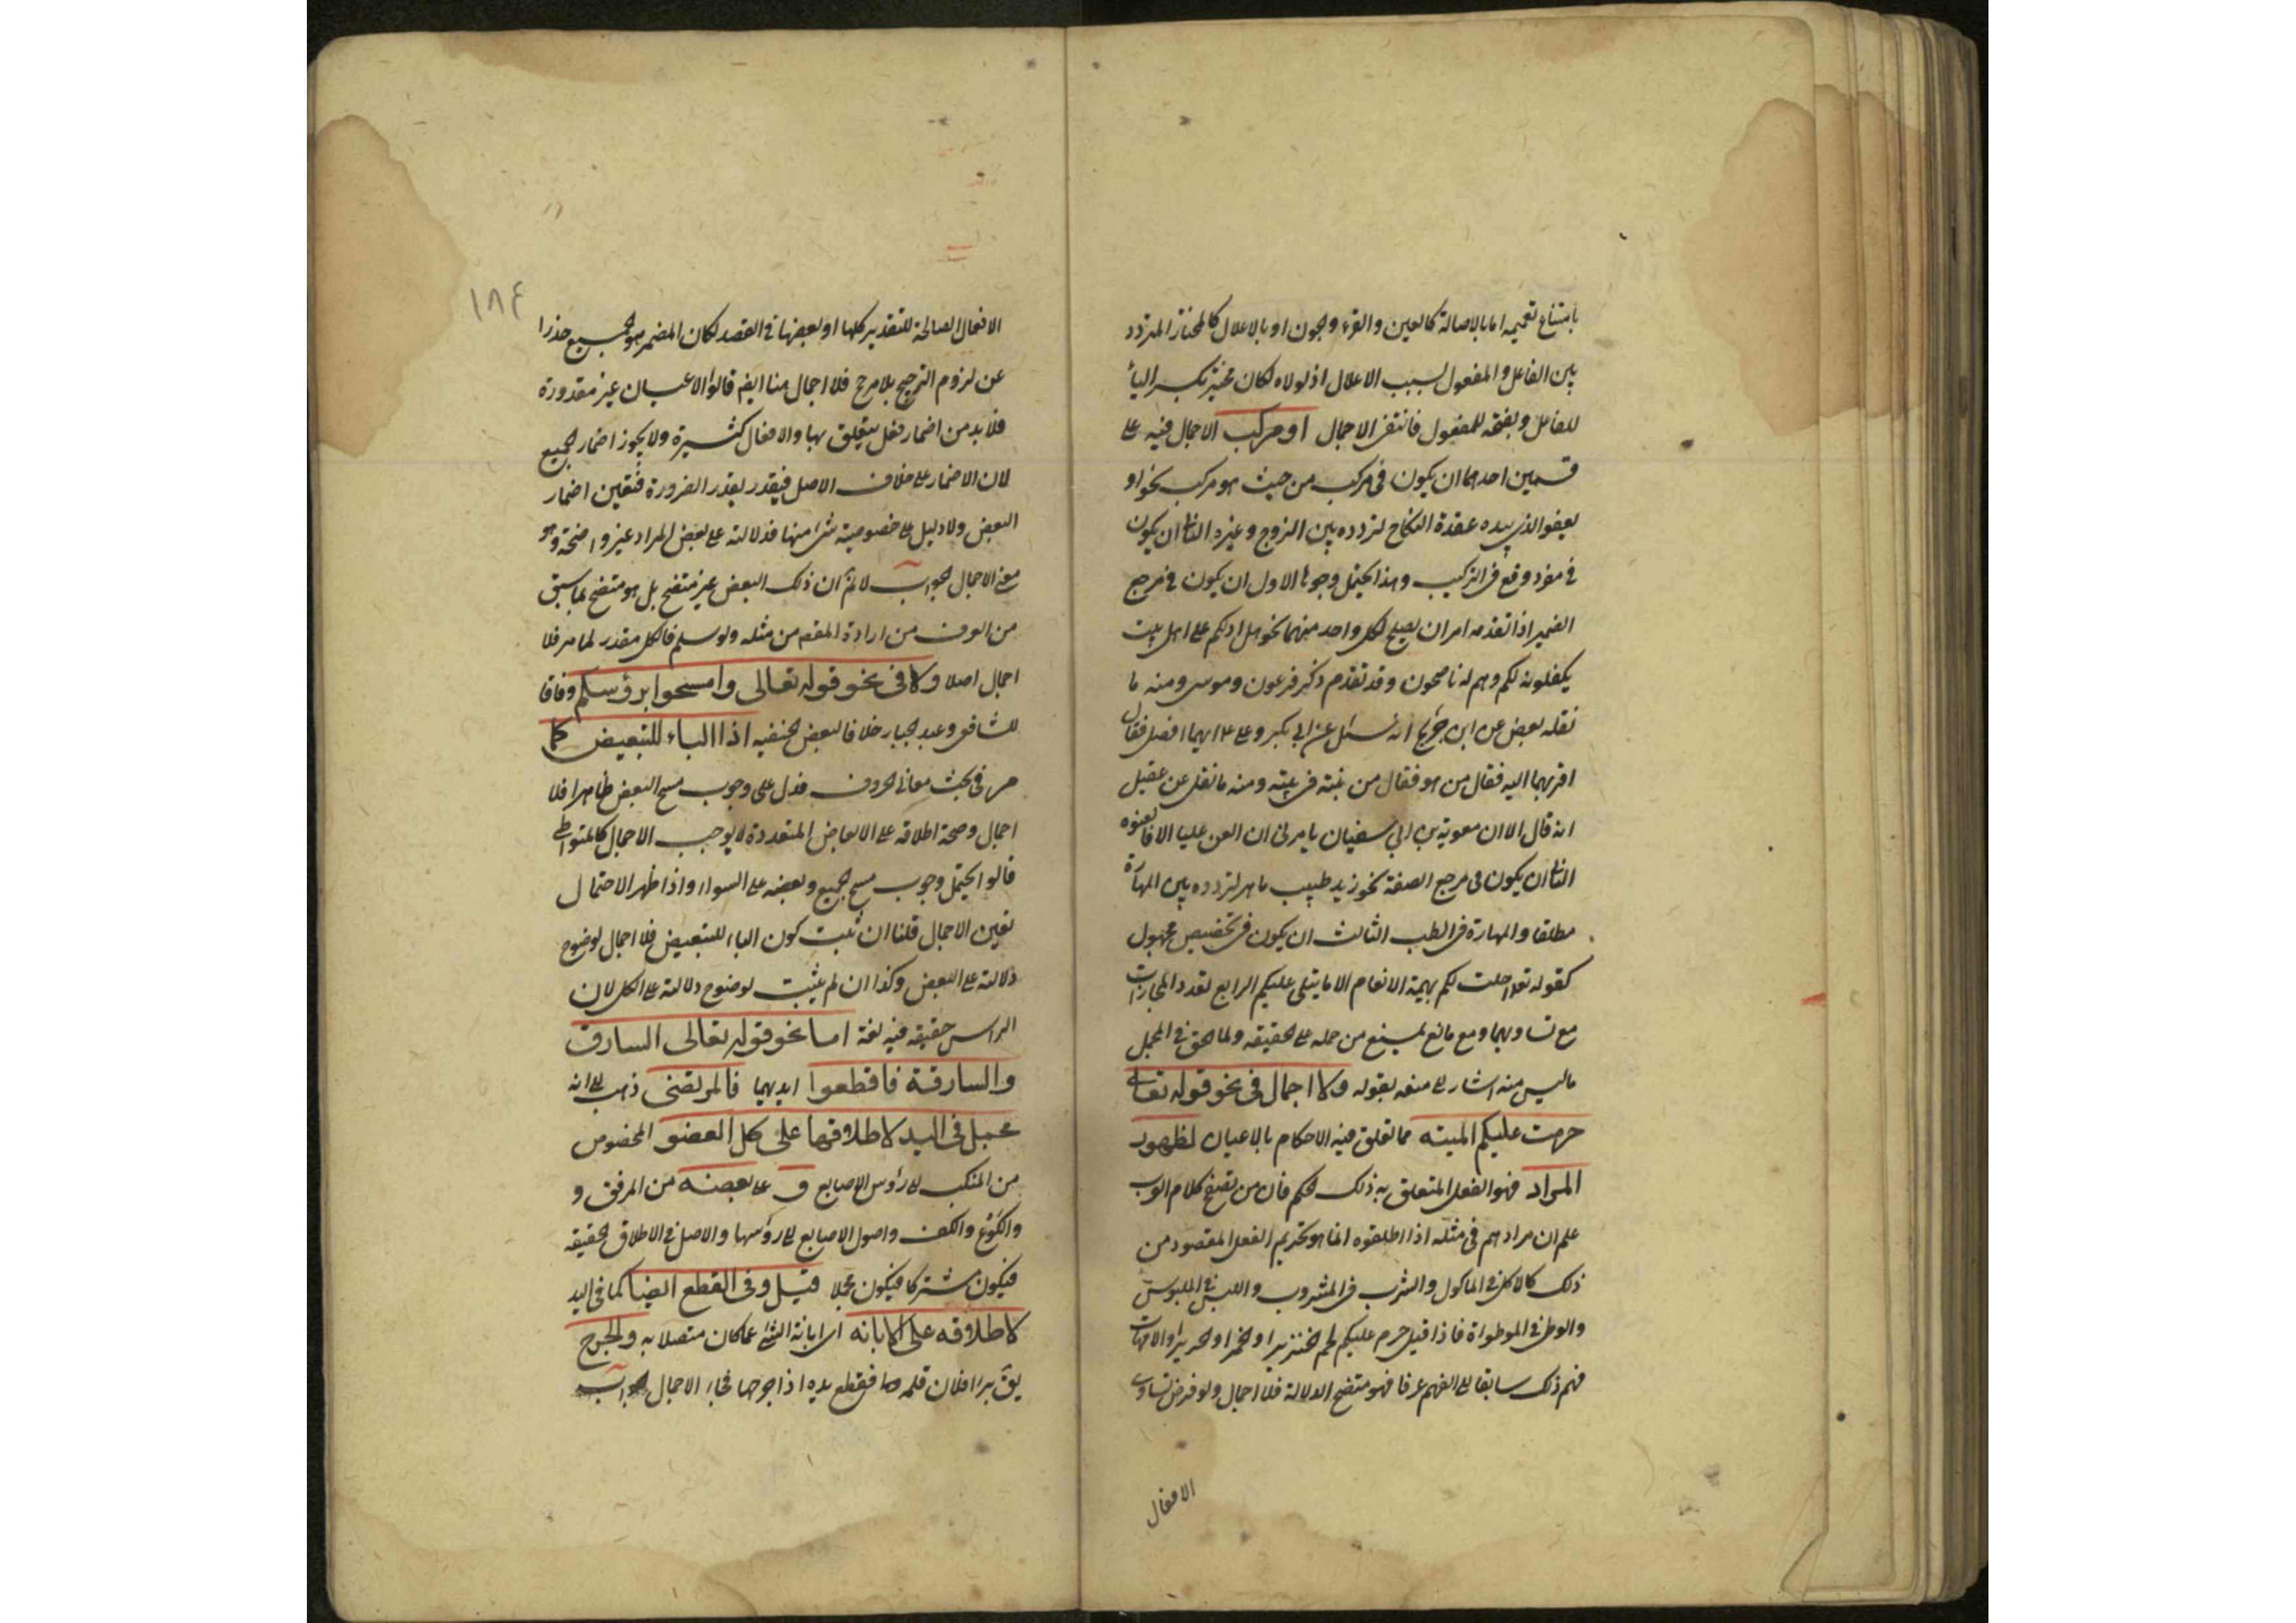 بامتناع تعميمه اما بالاصالة كالعين والقرء والجون او بالاعلال كالمختار المتردد
بين الفاعل والمفعول بسبب الاعلال اذ لولاه لكان مختير بكسر الياء
للفاعل وبفتحه للمفعول فانتفى الاجمال او مركب الاجمال فيه على
قسمين احدهما ان يكون فى مركب من حيث هو مركب نحو او
يعفو الذي بيده عقدة النكاح لتردده بين الزوج وغيره الثانى ان يكون
فى مفرد وقع فى التركيب وهذا يحتمل وجوها الاول ان يكون فى مرجع
الضمير اذا تقدمه امران يصلح لكل واحد منهما نحو هل ادلكم على اهل بيت
يكفلونه لكم وهم له ناصحون وقد تقدم ذكر فرعون وموسى ومنه ما
نقله بعض عن ابن جريج انه سئل عن ابي بكر وعلى ايهما افضل فقال
اقربهما اليه فقال من هو فقال من بنته فى بيته ومنه ما نقل عن عقيل
انه قال الا ان معوية بن ابي سفيان يامرنى ان العن عليا الا فالعنوه
الثالث ان يكون فى مرجع الصفة نحو زيد طبيب ماهر لتردده بين المهارة
مطلقا والمهارة فى الطب الثالث ان يكون فى تخصيص مجهول
كقوله تعالى احلت لكم بهيمة الانعام الا ما يتلى عليكم الرابع تعدد المجازات
مع تساويها ومع مانع يمنع من حمله على الحقيقه ولما الحق فى المجمل
ماليس منه اشار الى منعه بقوله ولا اجمال فى نحو قوله تعالى
حرمت عليكم الميته مما تعلق فيه الاحكام بالاعيان لظهور
المراد فهو الفعل المتعلق به ذلك الحكم فان من تصفح كلام العرب
علم ان مرادهم فى مثله اذا اطلقوه انما هو تحريم الفعل المقصود من
ذلك كالاكل فى الماكول والشرب فى المشروب واللبس فى الملبوس
والوطى فى الموطواة فاذا قيل حرم عليكم لحم الخنزير او الخمر او الحرير او الامهات
فهم ذلك سابقا الى الفهم عرفا فهو متضح الدلالة فلا اجمال ولو فرض تساوى
الافعال
١٨٤
الافعال الصالحة للتقدير كلها او بعضها فى القصد لكان المضمر هو الجميع حذرا
عن لزوم الترجيح بلا مرجح فلا اجمال هنا ايضا قالوا الاعيان غير مقدورة
فلا بد من اضمار فعل يتعلق بها والافعال كثيرة ولا يجوز اضمار الجميع
لان الاضمار على خلاف الاصل فيقدر بقدر الضرورة فتعين اضمار
البعض ولا دليل على خصوصية شئ منها فدلالته على بعض المراد غير واضحة وهو
معنى الاجمال الجواب لا نم ان ذلك البعض غير متضح بل هو متضح بما سبق
من العرف من ارادة المقصود من مثله ولو سلم فالكل مقدر لما مر فلا
اجمال اصلا ولا فى نحو قوله تعالى وامسحوا برؤسكم وفاقا
للشافعى وعبد الجبار خلافا لبعض الحنفيه اذا الباء للتبعيض كما
مر فى بحث معانى الحروف فدل على وجوب مسح البعض ظاهرا فلا
اجمال وصحة اطلاقه على الابعاض المتعددة لا يوجب الاجمال كالمتواطى
قالوا يحتمل وجوب مسح الجميع وبعضه على السواء واذا ظهر الاحتمال
تعين الاجمال قلنا ان ثبت كون الباء للتبعيض فلا اجمال لوضوح
دلالته على البعض وكذا ان لم يثبت لوضوح دلالته على الكل لان
الراس حقيقه فيه لغة اما نحو قوله تعالى السارق
والسارقة فاقطعوا ايديهما فالمرتضى ذهب الى انه
مجمل فى اليد لاطلاقها على كل العضو المخصوص
من المنكب الى رؤس الاصابع و على بعضه من المرفق و
والكوع والكف واصول الاصابع الى رؤسها والاصل فى الاطلاق الحقيقه
فيكون مشتركا فيكون مجملا قيل وفى القطع ايضا كما فى اليد
لاطلاقه على الابانه اى ابانة الشئ عما كان متصلا به والجرح
يق برا فلان قلمه فقطع يده اذا جرحها فجاء الاجمال الجواب